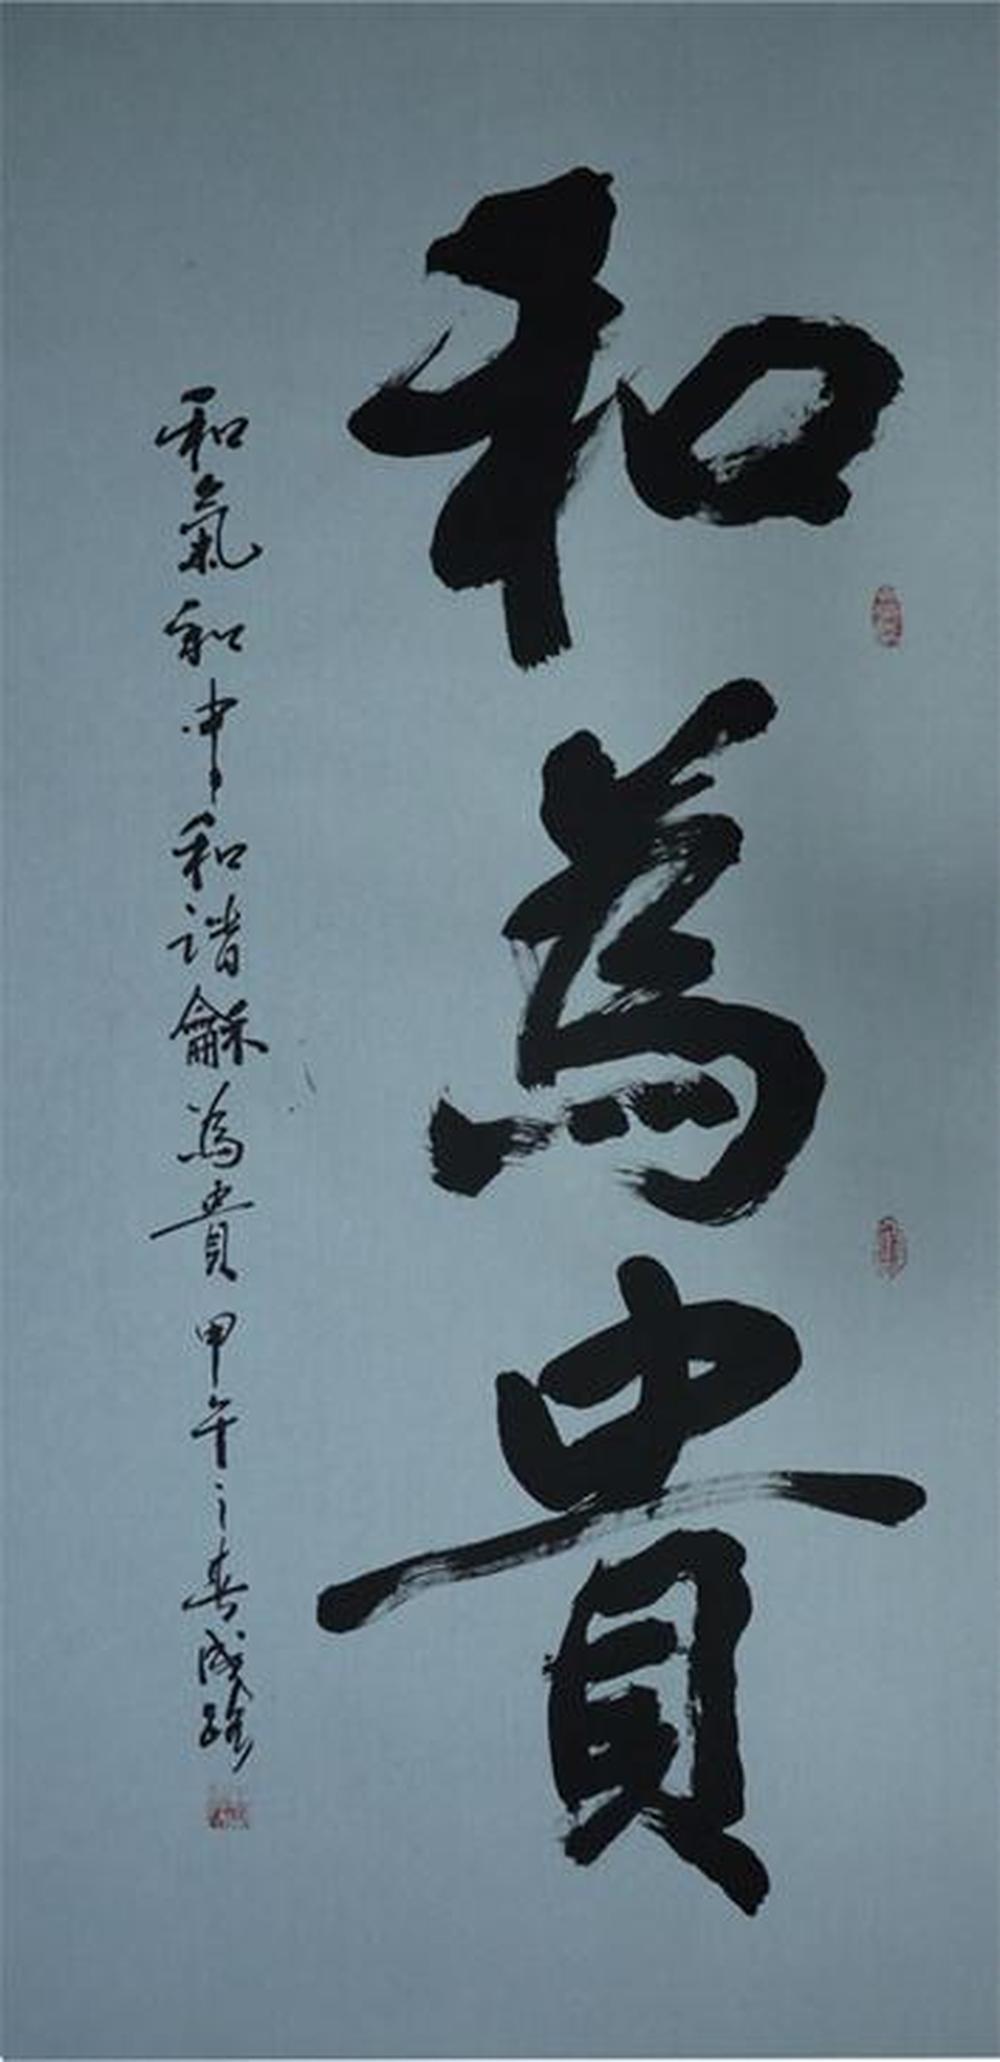 和為貴
和氣和中和谐龢為貴甲午之春成